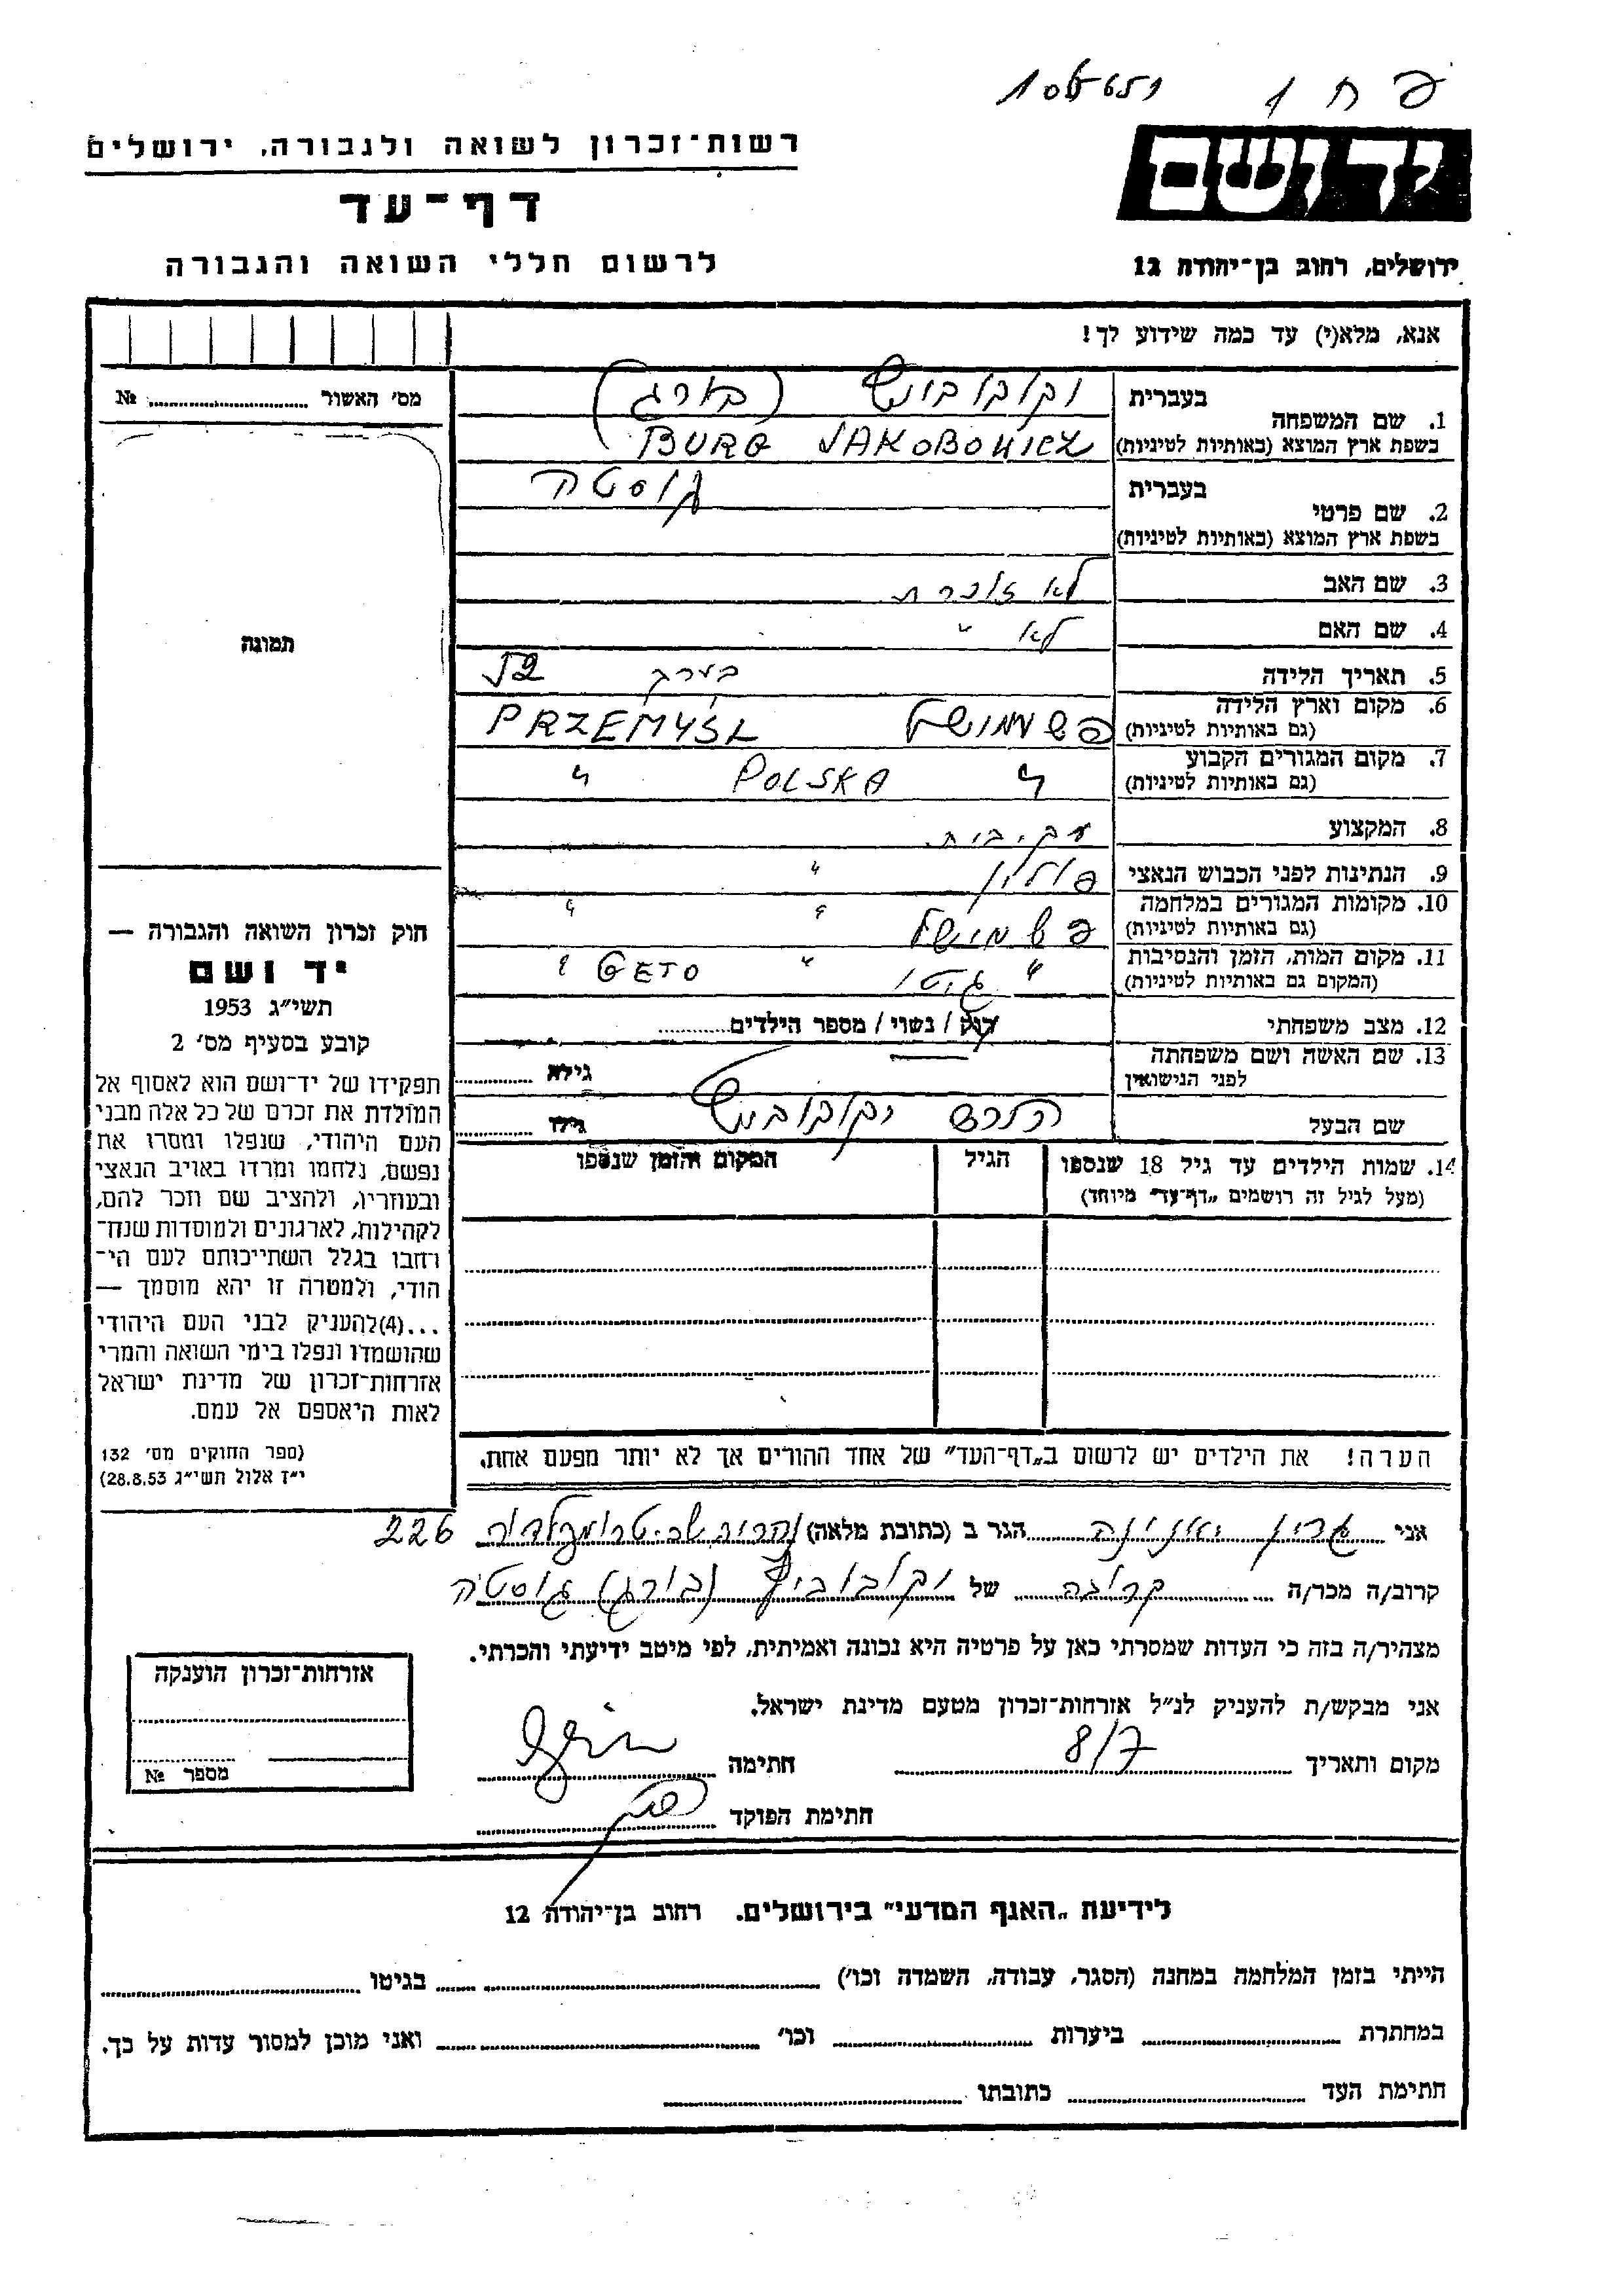 פ ח 1
יד ושם
ירושלים, רחוב בן-יהודה 12
רשות-זכרון לשואה ולגבורה, ירושלים
דף-עד
לרשום חללי השואה והגבורה
אנא, מלא(י) עד כמה שידוע לך!
מס׳ האשור № 
1. שם המשפחה
בעברית יקובוביץ (בורג)
בשפת ארץ המוצא (באותיות לטיניות) BURG JAKOBOWICZ
2. שם פרטי
בעברית גוסטה
בשפת ארץ המוצא (באותיות לטיניות)
3. שם האב לא זוכרת
4. שם האם לא "
5. תאריך הלידה בערך 52
6. מקום וארץ הלידה פשמישל PRZEMYŚL
(גם באותיות לטיניות)
7. מקום המגורים הקבוע " POLSKA "
(גם באותיות לטיניות)
8. המקצוע עק. בית
9. הנתינות לפני הכבוש הנאצי פולין "
10. מקומות המגורים במלחמה פשמישל " "
(גם באותיות לטיניות)
11. מקום המות, הזמן והנסיבות " גיטו " GETO "
(המקום גם באותיות לטיניות)
12. מצב משפחתי רווק / נשוי / מספר הילדים
13. שם האשה ושם משפחתה
לפני הנישואין
גילה
שם הבעל יקובוביץ
גילו
14. שמות הילדים עד גיל 18 שנספו
(מעל לגיל זה רושמים „דף-עד״ מיוחד)
הגיל
המקום והזמן שנספו
הערה! את הילדים יש לרשום ב„דף-העד״ של אחד ההורים אך לא יותר מפעם אחת.
תמונה
חוק זכרון השואה והגבורה —
יד ושם
תשי״ג 1953
קובע בסעיף מס׳ 2
תפקידו של יד-ושם הוא לאסוף אל
המולדת את זכרם של כל אלה מבני
העם היהודי, שנפלו ומסרו את
נפשם, נלחמו ומרדו באויב הנאצי
ובעוזריו, ולהציב שם וזכר להם,
לקהילות, לארגונים ולמוסדות שנח-
רחבו בגלל השתייכותם לעם הי-
הודי, ולמטרה זו יהא מוסמך —
...(4)להעניק לבני העם היהודי
שהושמדו ונפלו בימי השואה והמרי
אזרחות-זכרון של מדינת ישראל
לאות היאספם אל עמם.
(ספר החוקים מס׳ 132
י״ז אלול תשי״ג 28.8.53)
אני גרין יאנינה הגר ב (כתובת מלאה) נהריה שד. טרומפלדור 226
קרוב/ה מכר/ה קרובה של יקובוביץ (בורג) גוסטה
מצהיר/ה בזה כי העדות שמסרתי כאן על פרטיה היא נכונה ואמיתית, לפי מיטב ידיעתי והכרתי.
אני מבקש/ת להעניק לנ״ל אזרחות-זכרון מטעם מדינת ישראל.
מקום ותאריך 8/7 חתימה
חתימת הפוקד
אזרחות-זכרון הוענקה
מספר №
לידיעת „האגף המדעי״ בירושלים. רחוב בן-יהודה 12
הייתי בזמן המלחמה במחנה (הסגר, עבודה, השמדה וכו׳) בגיטו
במחתרת ביערות וכו׳ ואני מוכן למסור עדות על כך.
חתימת העד כתובתו